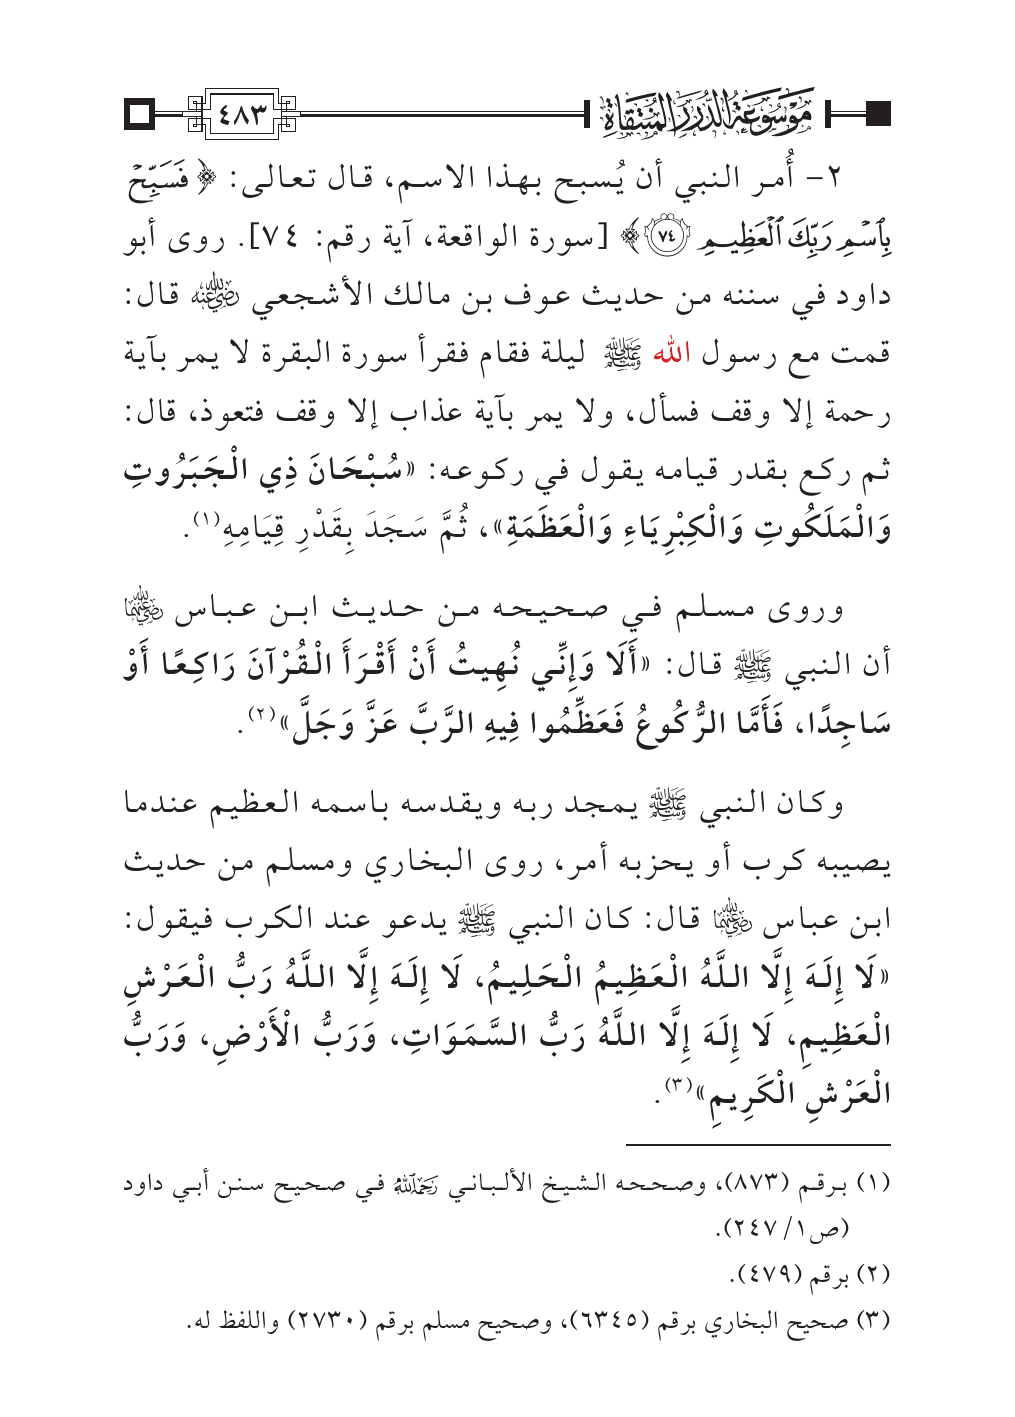 مَوْسُوعَةُ الدُّرَرِ المُنْتَقَاةِ ٤٨٣
٢- أُمر النبي أن يُسبح بهذا الاسم، قال تعالى: ﴿ فَسَبِّحْ
بِٱسْمِ رَبِّكَ ٱلْعَظِيمِ ٧٤ ﴾ [سورة الواقعة، آية رقم: ٧٤]. روى أبو
داود في سننه من حديث عوف بن مالك الأشجعي رضي الله عنه قال:
قمت مع رسول الله ﷺ ليلة فقام فقرأ سورة البقرة لا يمر بآية
رحمة إلا وقف فسأل، ولا يمر بآية عذاب إلا وقف فتعوذ، قال:
ثم ركع بقدر قيامه يقول في ركوعه: «سُبْحَانَ ذِي الْجَبَرُوتِ
وَالْمَلَكُوتِ وَالْكِبْرِيَاءِ وَالْعَظَمَةِ»، ثُمَّ سَجَدَ بِقَدْرِ قِيَامِهِ(١).
وروى مسلم في صحيحه من حديث ابن عباس رضي الله عنهما
أن النبي ﷺ قال: «أَلَا وَإِنِّي نُهِيتُ أَنْ أَقْرَأَ الْقُرْآنَ رَاكِعًا أَوْ
سَاجِدًا، فَأَمَّا الرُّكُوعُ فَعَظِّمُوا فِيهِ الرَّبَّ عَزَّ وَجَلَّ»(٢).
وكان النبي ﷺ يمجد ربه ويقدسه باسمه العظيم عندما
يصيبه كرب أو يحزبه أمر، روى البخاري ومسلم من حديث
ابن عباس رضي الله عنهما قال: كان النبي ﷺ يدعو عند الكرب فيقول:
«لَا إِلَهَ إِلَّا اللَّهُ الْعَظِيمُ الْحَلِيمُ، لَا إِلَهَ إِلَّا اللَّهُ رَبُّ الْعَرْشِ
الْعَظِيمِ، لَا إِلَهَ إِلَّا اللَّهُ رَبُّ السَّمَوَاتِ، وَرَبُّ الْأَرْضِ، وَرَبُّ
الْعَرْشِ الْكَرِيمِ»(٣).
(١) برقم (٨٧٣)، وصححه الشيخ الألباني رحمه الله في صحيح سنن أبي داود
(ص١/ ٢٤٧).
(٢) برقم (٤٧٩).
(٣) صحيح البخاري برقم (٦٣٤٥)، وصحيح مسلم برقم (٢٧٣٠) واللفظ له.